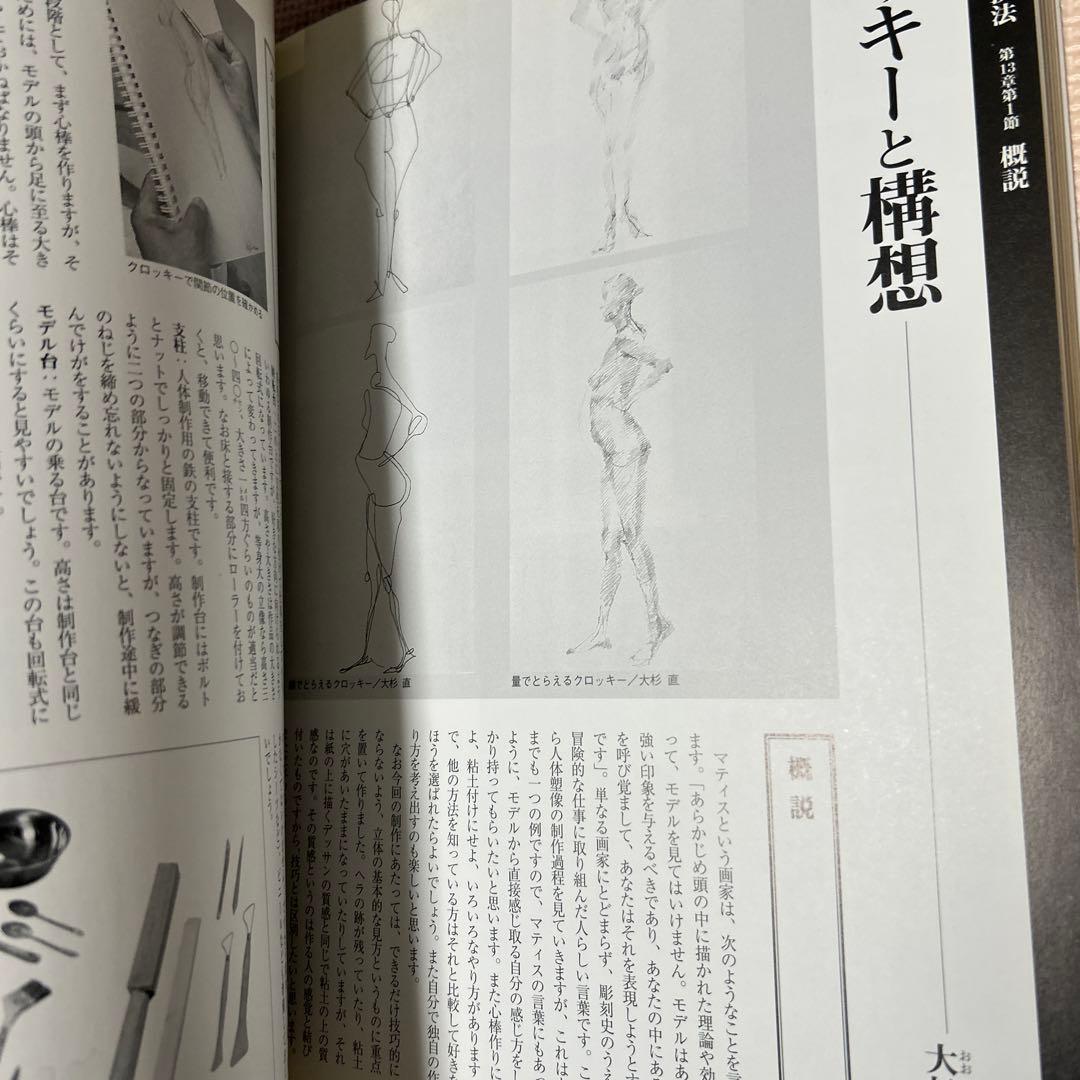 技法 第13章第1節 概説
キーと構想
大
おお
概説
マティスという画家は、次のようなことを言
ます。「あらかじめ頭の中に描かれた理論や効
って、モデルを見てはいけません。モデルはあ
強い印象を与えるべきであり、あなたの中にあ
を呼び覚まして、あなたはそれを表現しようとす
です」。単なる画家にとどまらず、彫刻史のうえ
冒険的な仕事に取り組んだ人らしい言葉です。こ
ら人体塑像の制作過程を見ていきますが、これは
までも一つの例ですので、マティスの言葉にもあっ
ように、モデルから直接感じ取る自分の感じ方をし
かり持ってもらいたいと思います。また心棒作りに
よ、粘土付けにせよ、いろいろなやり方があります
で、他の方法を知っている方はそれと比較して好きな
ほうを選ばれたらよいでしょう。また自分で独自の作
り方を考え出すのも楽しいと思います。
なお今回の制作にあたっては、できるだけ技巧的に
ならないよう、立体の基本的な見方というものに重点
を置いて作りました。ヘラの跡が残っていたり、粘土
に穴があいたままになっていたりしていますが、それ
は紙の上に描くデッサンの質感と同じで粘土の上の質
感なのです。その質感というのは作る人の感覚と結び
付いたものですから、技巧とは区別したいと思います。
量でとらえるクロッキー／大杉 直
線でとらえるクロッキー／大杉 直
回転式になっています。高さや大きさは作品の大きさ
によって変わってきますが、等身大の立像なら高さ三
〇〜四〇㌢、大きさ一㍍四方ぐらいのものが適当だと
思います。なお床と接する部分にローラーを付けてお
くと、移動できて便利です。
支柱：人体制作用の鉄の支柱です。制作台にはボルト
とナットでしっかりと固定します。高さが調節できる
ように二つの部分からなっていますが、つなぎの部分
のねじを締め忘れないようにしないと、制作途中に緩
んでけがをすることがあります。
モデル台：モデルの乗る台です。高さは制作台と同じ
くらいにすると見やすいでしょう。この台も回転式に
クロッキーで関節の位置を確かめる
段階として、まず心棒を作りますが、そ
めには、モデルの頭から足に至る大き
ねばなりません。心棒はそ
いでしょう。